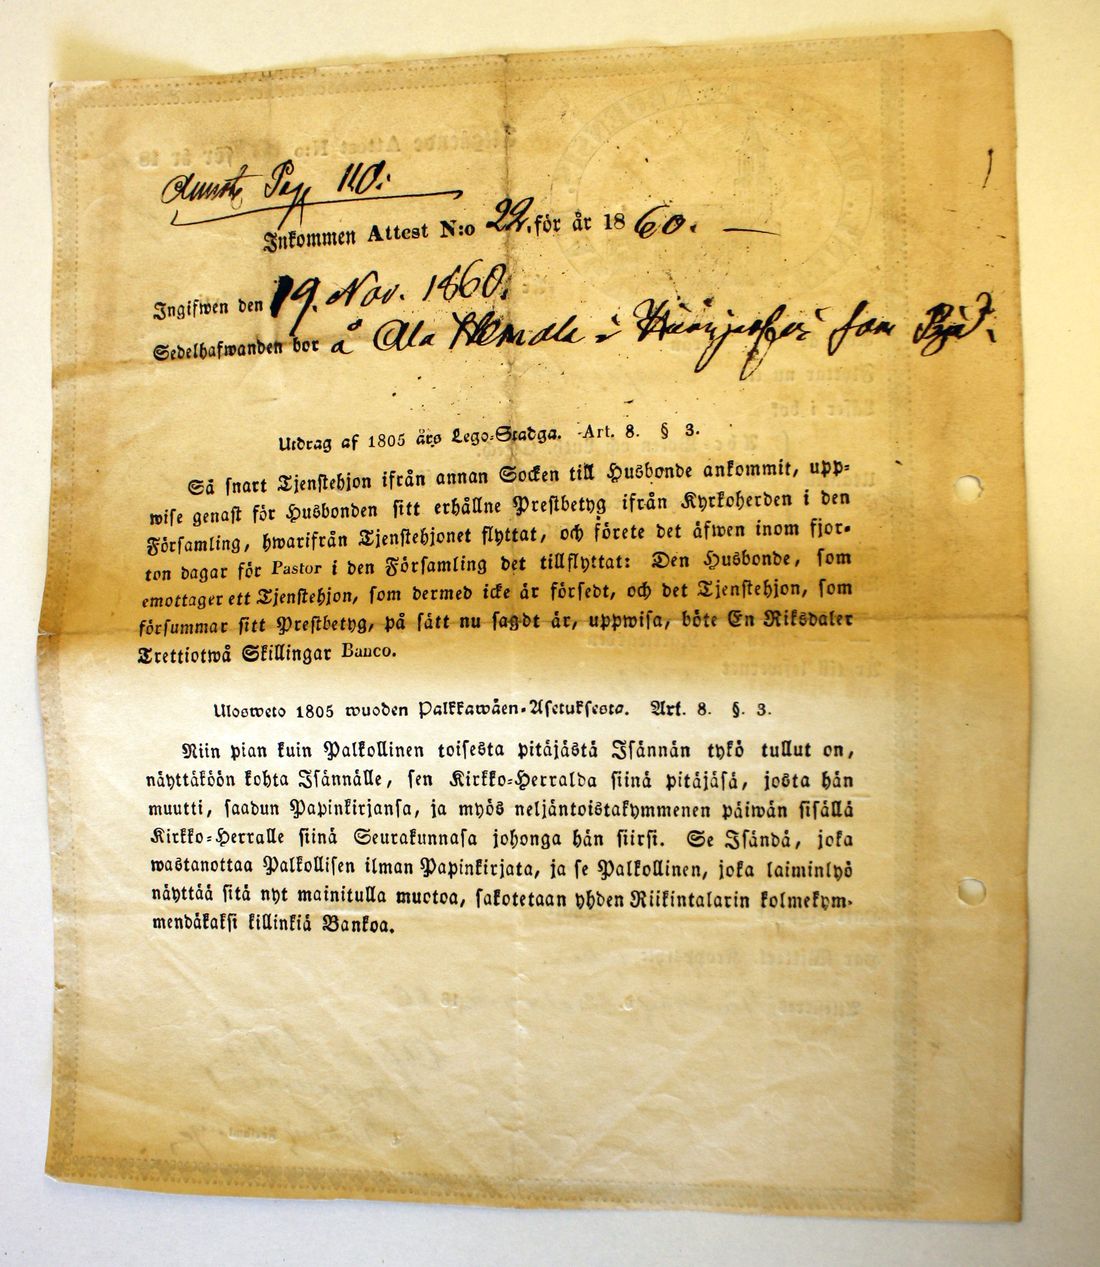 Pag 110.
Inkommen Attest N:o 22. för år 1860.
Ingifwen den 19. Nov. 1860.
Sedelhafwanden bor å Ala i som
Utdrag af 1805 års Lego-Stadga. Art. 8. § 3.
Så snart Tjenstehjon ifrån annan Socken till Husbonde ankommit, upp-
wise genast för Husbonden sitt erhållne Prestbetyg ifrån Kyrkoherden i den
Församling, hwarifrån Tjenstehjonet flyttat, och förete det äfwen inom fjor-
ton dagar för Pastor i den Församling det tillflyttat: Den Husbonde, som
emottager ett Tjenstehjon, som dermed icke är försedt, och det Tjenstehjon, som
försummar sitt Prestbetyg, på sätt nu sagdt är, uppwisa, böte En Riksdaler
Trettiotwå Skillingar Banco.
Ulosweto 1805 wuoden Palkkawäen-Asetuksesta. Art. 8. §. 3.
Niin pian kuin Palkollinen toisesta pitäjästä Isännän tykö tullut on,
näyttäköön kohta Isännälle, sen Kirkko-Herralda siinä pitäjäsä, josta hän
muutti, saadun Papinkirjansa, ja myös neljäntoistakymmenen päiwän sisällä
Kirkko-Herralle siinä Seurakunnasa johonga hän siirsi. Se Isändä, joka
wastanottaa Palkollisen ilman Papinkirjata, ja se Palkollinen, joka laiminlyö
näyttää sitä nyt mainitulla muotoa, sakotetaan yhden Riikintalarin kolmekym-
mendäkaksi killinkiä Bankoa.